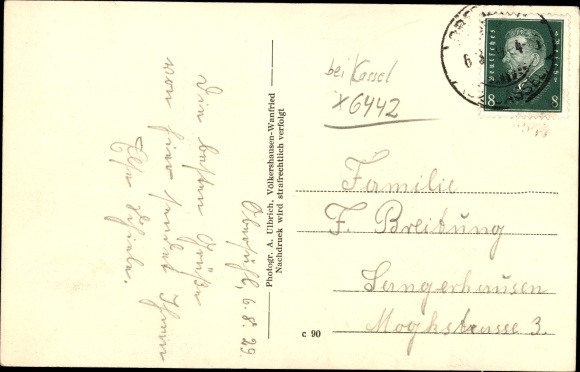 Obersuhl, 6.8.29.
Die besten Grüße
von hier sendet Ihnen
Photogr. A. Ulbrich, Völkershausen-Wanfried
Nachdruck wird strafrechtlich verfolgt
c 90
bei Kassel
x6442
Deutsches Reich
8 8
Familie
F. Breitung
Sangerhausen
Mogkstrasse 3.